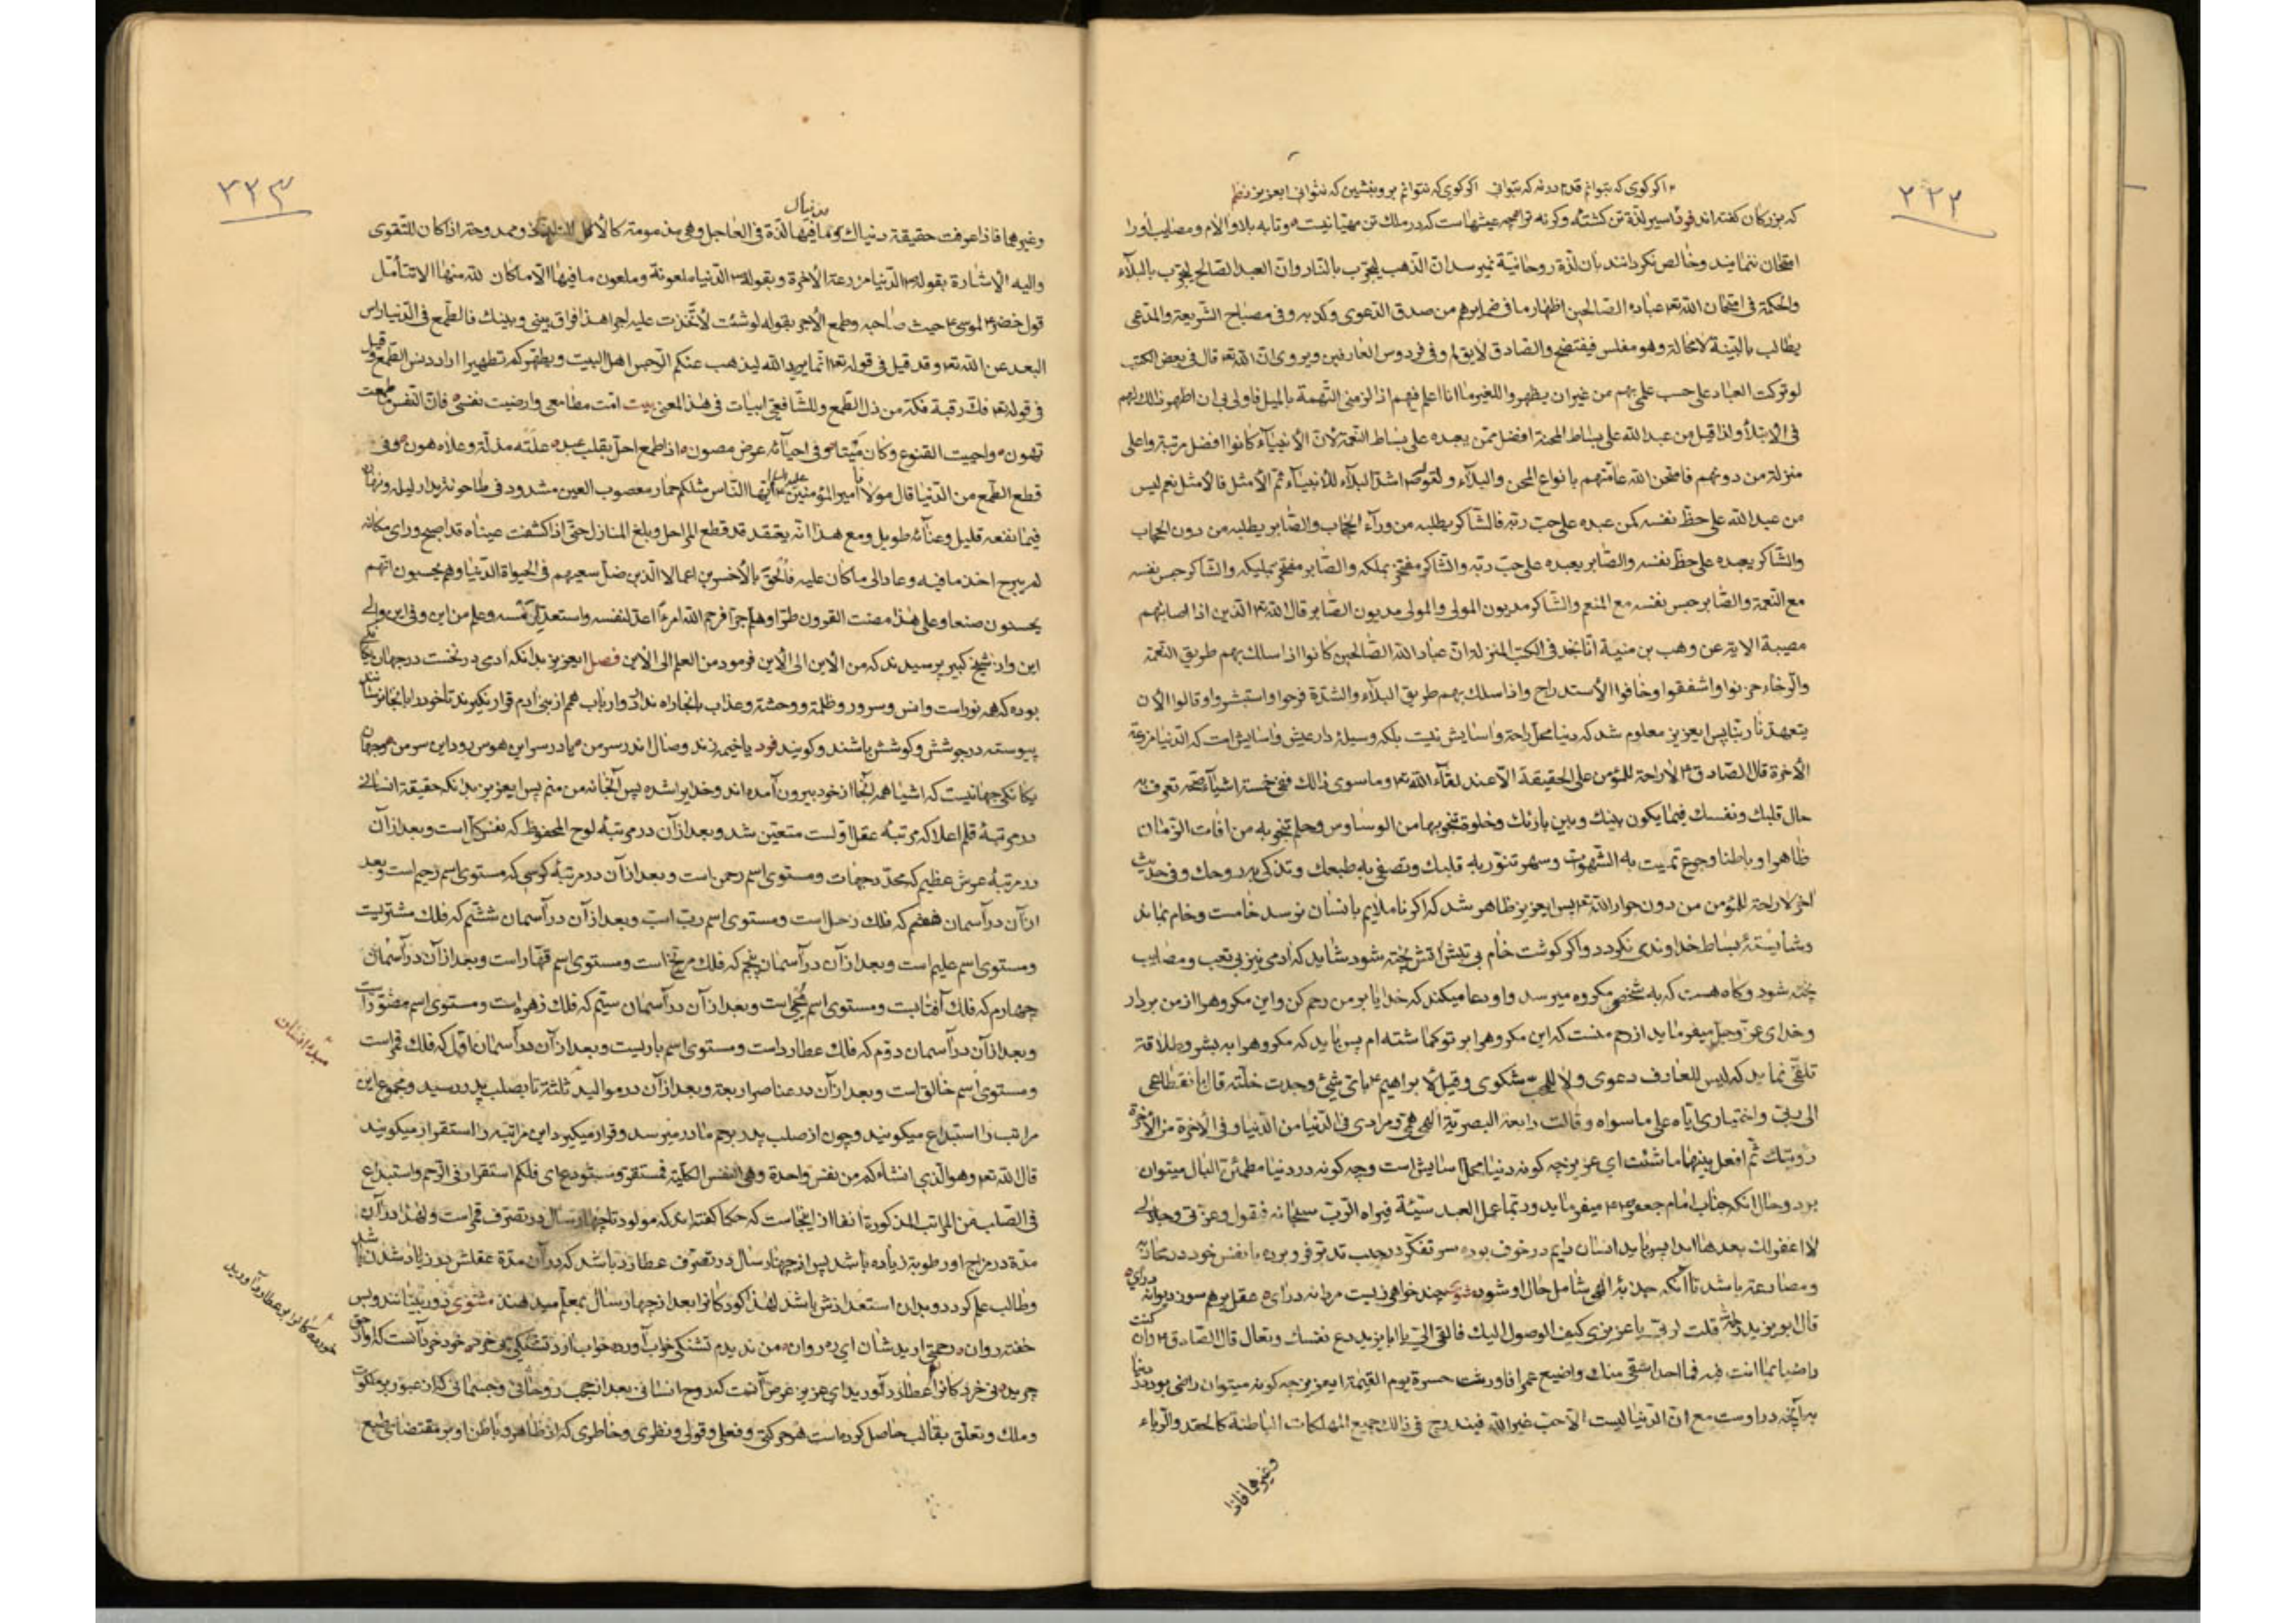 ۲۲۲
اکرکوی که بتوانم قدم درنه که بتوانی اکرکوی که نتوانم برو بنشین که نتوانی ایعزیز نظم
که بزرکان کفته اند فرد اسیر لذة تن کشتهٔ وکرنه ترا چه عیشهاست که در ملک تن مهیا نیست و تا به بلا و الام و مصایب او را
امتحان ننمایند و خالص نکردانند بان لذة روحانیة نمیرسد ان الذهب یجرّب بالنار و ان العبد الصالح یجرّب بالبلآء
والحکمة فی امتحان الله تع عباده الصالحین اظهار ما فی ضمایرهم من صدق الدعوی و کذبه و فی مصباح الشریعه والمدعی
یطالب بالبیّنة لامحالة وهو مفلس فیفتضح والصادق لایق لم و فی فردوس العارفین و یروی ان الله تع قال فی بعض الکتب
لو ترکت العباد علی حسب علمی بهم من غیر ان یظهروا للغیر ما انا اعلم فیهم اذا لزمنی التهمة بالمیل فاولی بی ان اظهر ذالک لهم
فی الابتلأ و اذا قیل من عبد الله علی بساط المحنة افضل ممّن یعبده علی بساط النعمة لان الأنبیآء کانوا افضل مرتبة و اعلی
منزلة من دونهم فامتحن الله عامّتهم بانواع المحن والبلآء و لقوله اشدّ البلآء للأنبیآء ثم الأمثل فالأمثل نعم لیس
من عبد الله علی حظّ نفسه کمن عبده علی حبّ ربّه فالشاکر یطلبه من ورآء الحجاب والصابر یطلبه من دون الحجاب
والشاکر یعبده علی حظّ نفسه والصابر یعبده علی حبّ ربّه والشاکر مفتخر بملکه والصابر مفتخر بملیکه والشاکر حبس نفسه
مع النعمة والصابر حبس نفسه مع المنعم والشاکر مدیون المولی والمولی مدیون الصابر قال الله تع الذین اذا اصابتهم
مصیبة الایة عن وهب بن منبة انا نجد فی الکتب المنزلة ان عباد الله الصالحین کانوا اذا سلک بهم طریق النعمة
والرخاء حزنوا و اشفقوا و خافوا الأستدراج و اذا سلک بهم طریق البلآء والشدّة فرحوا و استبشروا و قالوا الأن
یتعهدنا ربّنا پس ایعزیز معلوم شد که دنیا محل راحة و اسایش نیست بلکه وسیلهٔ دار عیش و اسایش است که الدنیا مزرعة
الأخرة قال الصادق ع لاراحة للمؤمن علی الحقیقة الّا عند لقآء الله تع و ما سوی ذالک ففی خمسة اشیآء صمت تعرف به
حال قلبک و نفسک فیما یکون بینک و بین بارئک و خلوة تنجو بها من الوساوس و حلم تنجو به من افات الزمان
ظاهرا و باطنا و جوع تمیت به الشهوت و سهر تنوّر به قلبک و تصفی به طبعک و تذکی به روحک و فی حدیث
اخر لاراحة للمؤمن من دون جوار الله تع پس ایعزیز ظاهر شد که اکر ناملایم بانسان نرسد خامست و خام بماند
و شایستهٔ بساط خداوندی نکردد و اکر کوشت خام بی تپش اتش پخته شود شاید که ادمی نیز بی تعب و مصایب
پخته شود و کاه هست که به شخصی مکروه میرسد و او دعا میکند که خدایا بر من رحم کن و این مکروه را از من بردار
و خدای عزّ وجل میفرماید از رحم منست که این مکروه را بر تو کماشته ام پس باید که مکروه را به بشر و طلاقة
تلقّی نماید که لیس للعارف دعوی و لا للمحب شکوی و قیل لأبراهیم ع بای شیء وجدت خلّته قال بانقطاعی
الی ربّی و اختیاری ایاه علی ما سواه و قالت رابعة البصریّة الهی همّی و مرادی فی الدنیا من الدنیا و فی الأخرة من الأخرة
رؤیتک ثم افعل بینهما ما شئت ای عزیز چه کونه دنیا محل اسایش است و چه کونه در دنیا مطمئن البال میتوان
برد و حال انکه جناب امام جعفر ع میفرماید و ربّما عمل العبد سیّئة فیراه الرب سبحانه فیقول و عزّتی و جلالی
لا اغفر لک بعدها ابدا پس باید انسان دایم در خوف بوده سر تفکّر در جیب تدبّر فرو برده با نفس خود در محاربه
و مصارعة باشد تا انکه جذبهٔ الهی شامل حال او شود چند خواهی زیست مردانه درای عقل برهم سوز دیوانه درای
قال ابویزید قلت لربّی یا عزیزی کیف الوصول الیک فالقی الیّ یا ابا یزید دع نفسک و تعال قال الصادق ع و ان کنت
راضیا بما انت فیه فما احد اشقی منک و اضیع عمرا فاورثت حسرة یوم القیمة ایعزیز چه کونه میتوان راضی بود بدنیا
به انچه در اوست مع ان الدنیا لیست الا حب غیر الله فیندرج فی ذالک جمیع المهلکات الباطنة کالحقد والریاء
وغیرهما فاذا
۲۲۳
وغیرهما فاذا عرفت حقیقة دنیاک و ما فیها لذّة فی العاجل و هی مذمومة و ممدوحة اذا کان للتقوی
والیه الاشارة بقوله الدنیا مزرعة الأخرة و بقوله الدنیا ملعونة و ملعون ما فیها الّا ما کان لله منها الا تتأمّل
قول خضر لموسی ع حیث صاحبه و طمع الأجر بقوله لو شئت لاتّخذت علیه اجرا هذا فراق بینی و بینک فالطمع فی الدنیا راس
البعد عن الله تع و قد قیل فی قوله تع انما یرید الله لیذهب عنکم الرجس اهل البیت و یطهّرکم تطهیرا اراد دنس الطمع و قیل
فی قوله تع فک رقبة فکّه من ذل الطمع و للشافعی ابیات فی هذا المعنی بیت امت مطامعی و ارضیت نفسی فان النفس ما طمعت
تهون و احییت القنوع و کان میتا و فی احیائه عرض مصون اذا طمع احل بقلب عبد علته مذلة و علاه هون و فی
قطع الطمع من الدنیا قال مولانا امیر المؤمنین علیه السلم ایها الناس مثلکم حمار معصوب العین مشدود فی طاحونة یدار لیله و نهاره
فیما نفعه قلیل و عنائه طویل و مع هذا انّه یعتقد قد قطع المراحل و بلغ المنازل حتی اذا کشفت عیناه قد اصبح و رای مکانه
لم یبرح اخذ ما فیه و عاد الی ما کان علیه فالحق بالأخسرین اعمالا الذین ضلّ سعیهم فی الحیوة الدنیا و هم یحسبون انهم
یحسنون صنعا و علی هذا مضت القرون طرّا و هلم جرّا فرحم الله امرءا اعدّ لنفسه و استعد لرمسه و علم من این و فی این و الی
این و از شیخ کبیر پرسیدند که من الأین الی الأین فرمود من العلم الی الأین فصل ایعزیز بدانکه ادمی در نخست در جهان یکانکی
بوده که همه نور است و انس و سرور و ظلمة و وحشة و عذاب بانجا راه ندارد
پیوسته در جوشش و کوشش باشند و کویند فرد یا خیمه زند وصال اندر سر من یا در سر این هوس رود این سر من
یکانکی جهانیست که اشیا همه انجا از خود بیرون آمده اند و خدایرا شده پس ایعزیز بدانکه حقیقة انسانی
در مرتبهٔ قلم اعلا که مرتبهٔ عقل اولست متعیّن شد و بعد از آن در مرتبهٔ لوح المحفوظ که نفس کل است و بعد از آن
در مرتبهٔ عرش عظیم که محدّد جهات و مستوی اسم رحمن است و بعد از آن در مرتبهٔ کرسی که مستوی اسم رحیم است و بعد
از آن در آسمان هفتم که فلک زحل است و مستوی اسم رب است و بعد از آن در آسمان ششم که فلک مشتریست
و مستوی اسم علیم است و بعد از آن در آسمان پنجم که فلک مریخ است و مستوی اسم قهّار است و بعد از آن در آسمان
چهارم که فلک آفتابست و مستوی اسم محیی است و بعد از آن در آسمان سیّم که فلک زهره است و مستوی اسم مصوّر است
و بعد از آن در آسمان دوّم که فلک عطارد است و مستوی اسم باریست و بعد از آن در آسمان اوّل که فلک قمر است
و مستوی اسم خالق است و بعد از آن در عناصر اربعة و بعد از آن در موالید ثلثة تا بصلب پدر رسید و مجموع این
مراتب را استبداع میکویند و چون از صلب پدر برحم مادر میرسد و قرار میکیرد این مراتبه را استقرار میکویند
قال الله تع و هو الّذی انشاءکم من نفس واحدة و هی النفس الکلیّة فمستقرّ و مستودع ای فلکم استقرار فی الرحم و استبداع
فی الصلب من المراتب المذکورة انفا از اینجاست که حکما کفته اند که مولود تا چهار سال در تصرّف قمر است و لهذا در آن
مدّة در مزاج او رطوبة زیاده باشد پس از چهار سال در تصرّف عطارد باشد که در آن مدة عقلش در زیاد شدن باشد
و طالب علم کردد و بدان استعدادش باشد لهذا کودکانرا بعد از چهار سال بمعلّم میدهند مثنوی
خفته روان رحمتی ارید شان ای ره روان من ندیدم تشنکی خواب آورد خواب آرد تشنکی بی خرد خود خرد آنست که او از حق
چرید نی خرد کانرا عطارد آورید ای عزیز غرض آنست که روح انسانی بعد از حجب روحانی و جسمانی که از عبور بر ملکوت
و ملک و تعلّق بقالب حاصل کرده است هر حرکتی و فعلی و قولی و نظری و خاطری که از ظاهر و باطن او بر مقتضای طبع